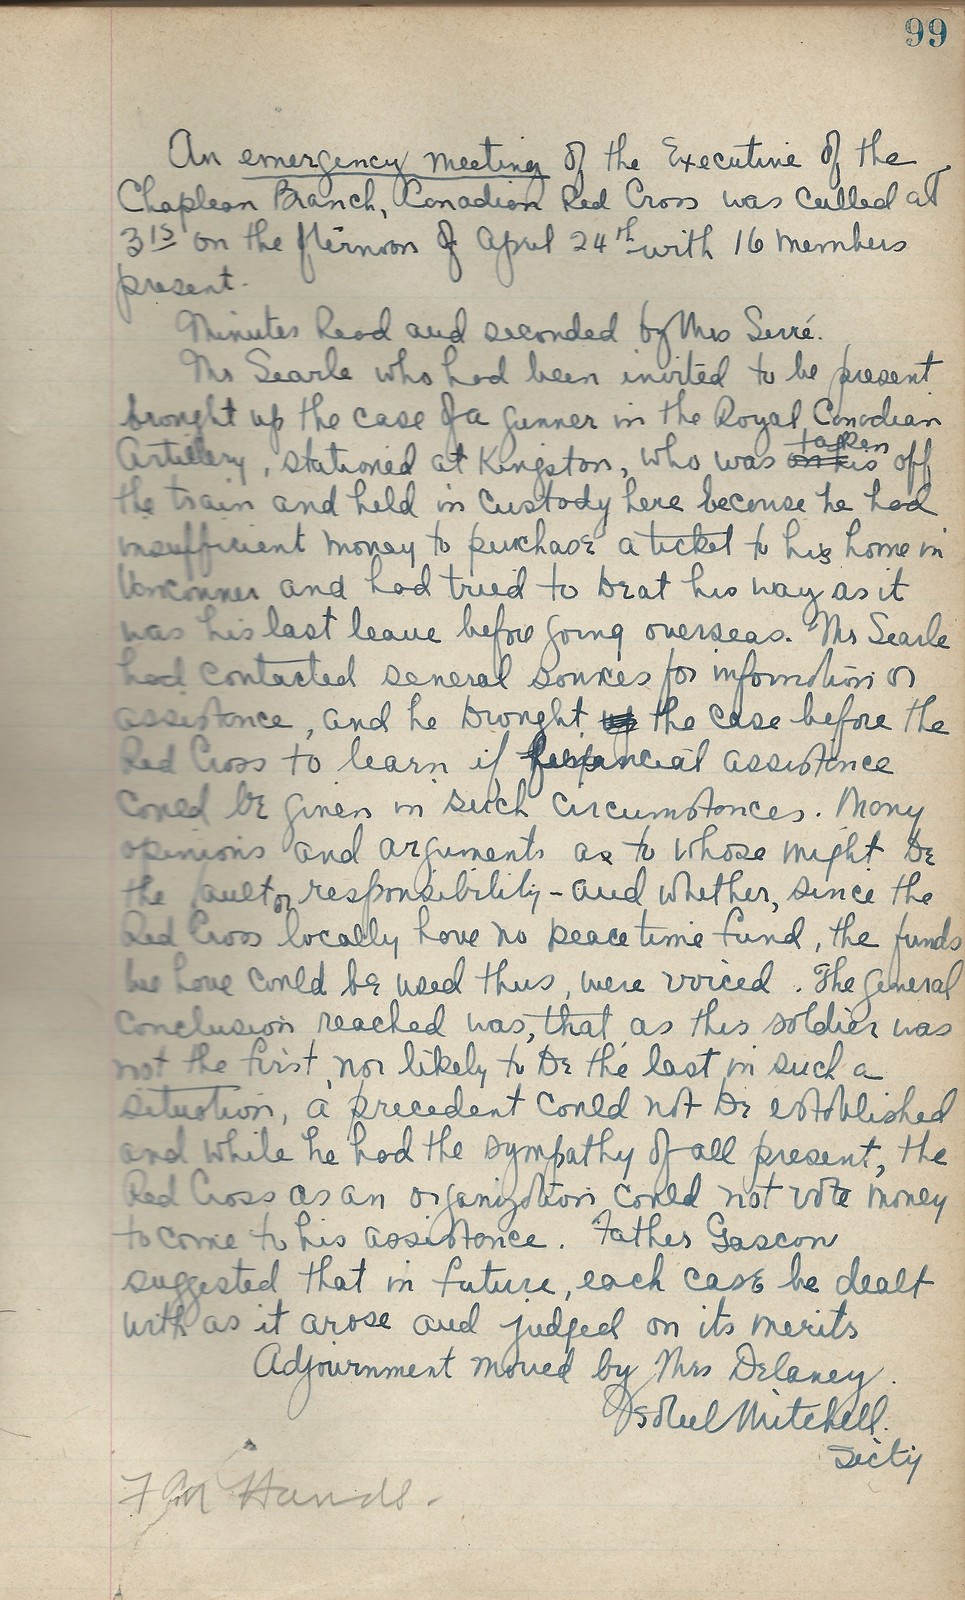 99
An emergency meeting of the Executive of the
Chapleau Branch, Canadian Red Cross was called at
3 15 on the fternoon of April 24th with 16 members
present.
Minutes Read and seconded by Mrs Serré.
Mr Searle who had been invited to be present
brought up the case of a gunner in the Royal Canadian
Artillery, stationed at Kingston, who was taken off
the train and held in custody here because he had
insufficient money to purchase a ticket to his home in
Vancouver and had tried to beat his way as it
was his last leave before going overseas. Mr Searle
had contacted several sources for information or
assistance, and he brought the case before the
Red Cross to learn if financial assistance
could be given in such circumstances. Many
opinions and arguments as to whose might be
the fault or responsibility - and whether, since the
Red Cross locally have no peace time fund, the funds
we have could be used thus, were voiced. The general
conclusion reached was, that as this soldier was
not the first, nor likely to be the last in such a
situation, a precedent could not be established
and while he had the sympathy of all present, the
Red Cross as an organization could not vote money
to come to his assistance. Father Gascon
suggested that in future, each case be dealt
with as it arose and judged on its merits
Adjournment moved by Mrs Delaney.
Isobel Mitchell.
Secty
Hands.